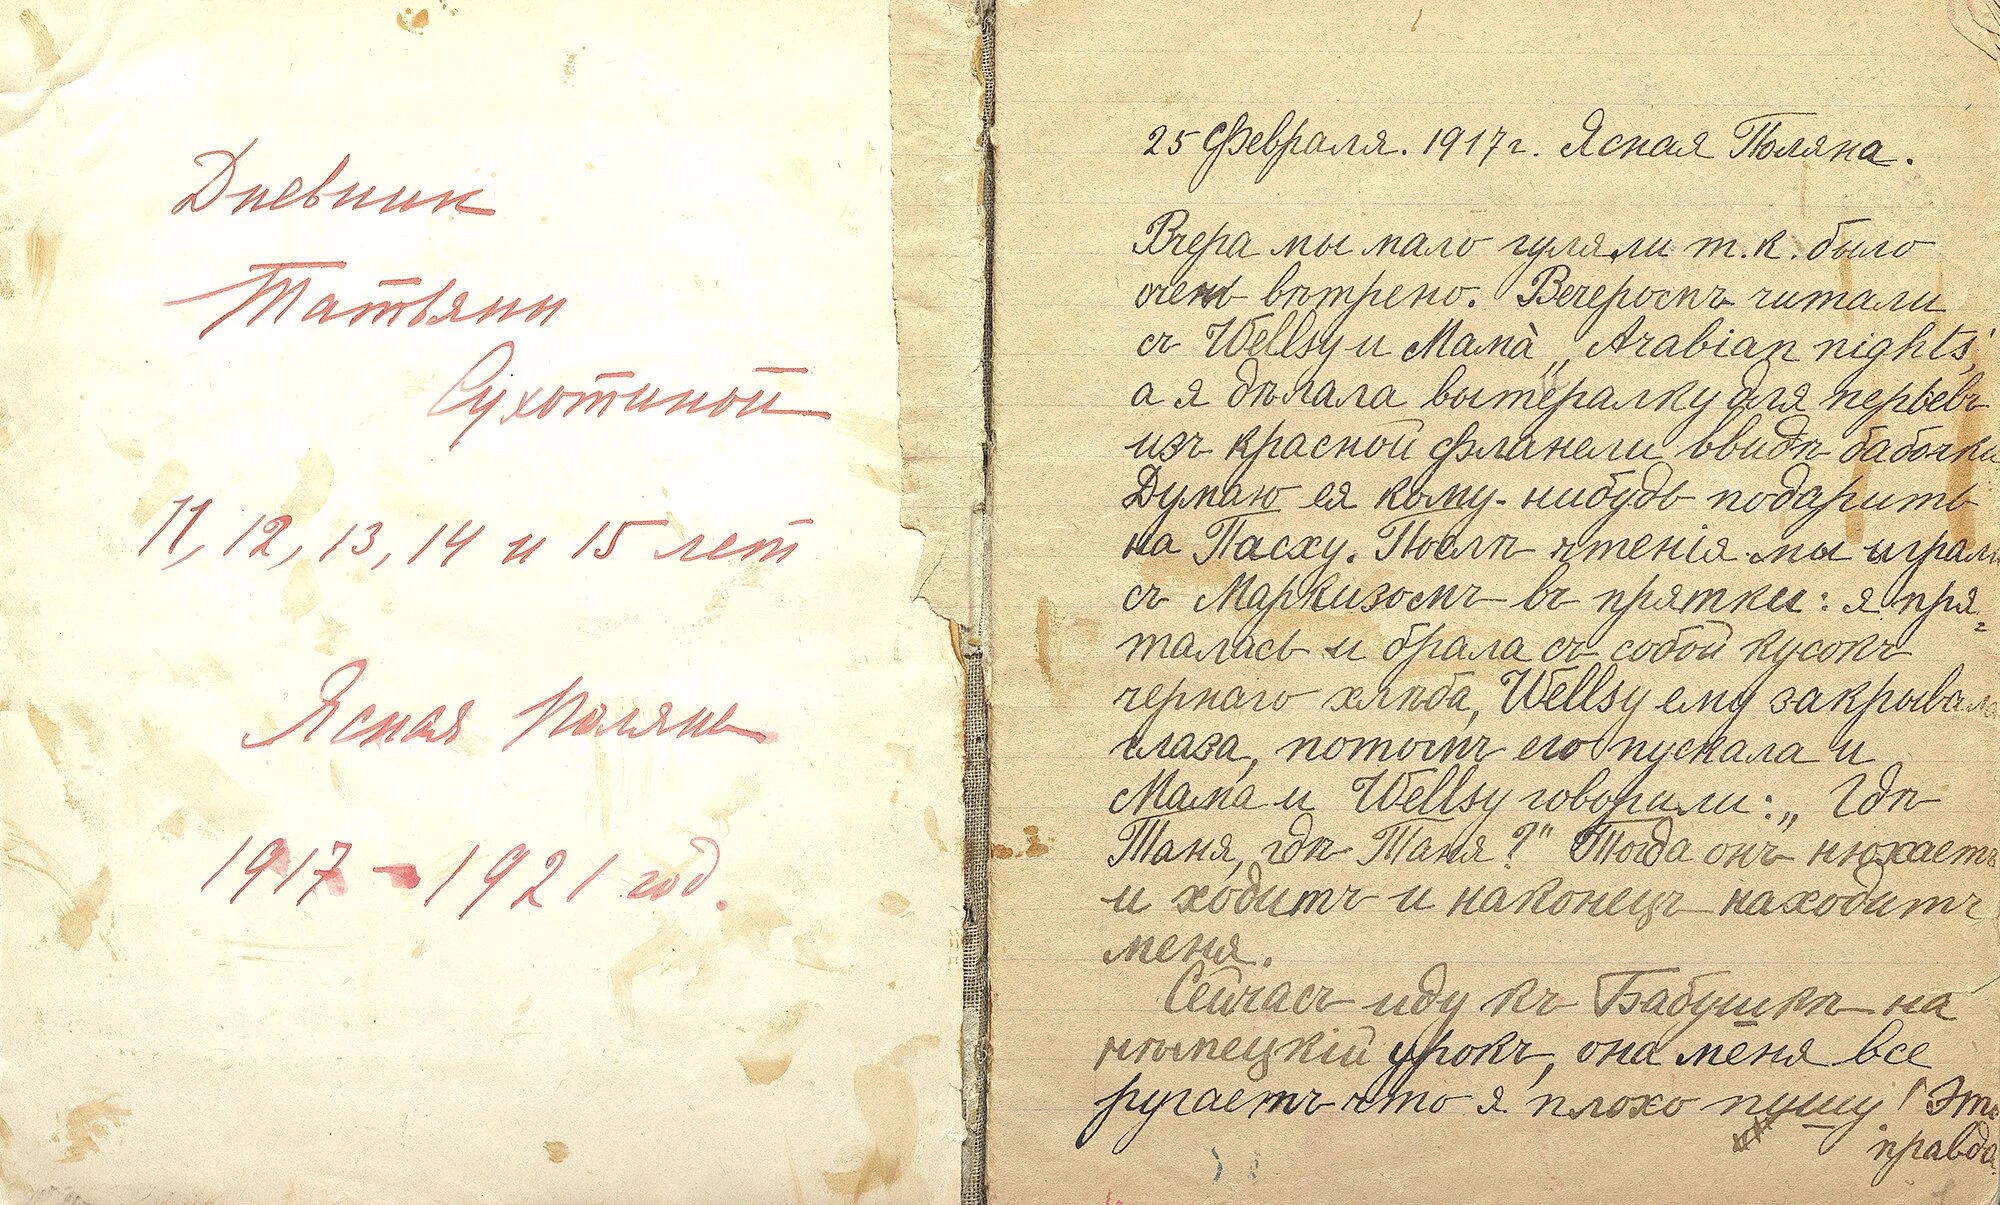 Дневник
Татьяны
Сухотиной
11, 12, 13, 14 и 15 лет
Ясная Поляна
1917 - 1921 год.
25 Февраля. 1917 г. Ясная Поляна.
Вчера мы мало гуляли т.к. было
очень вѣтрено. Вечеромъ читали
съ Wellsy и Мамà „Arabian nights",
а я дѣлала вытералку для перьевъ
изъ красной фланели ввидѣ бабочки
Думаю ея кому-нибудь подарить
на Пасху. Послѣ чтенія мы играли
съ Маркизомъ въ прятки: я пря-
талась и брала съ собой кусокъ
чернаго хлѣба, Wellsy ему закрывала
глаза, потомъ его пускала и
Мама и Wellsy говорили: „Гдѣ
Таня, гдѣ Таня?" Тогда онъ нюхаетъ
и ходитъ и наконецъ находитъ
меня.
Сейчасъ иду къ Бабушкѣ на
нѣмецкій урокъ, она меня все
ругаетъ что я плохо пишу! Это
правда.